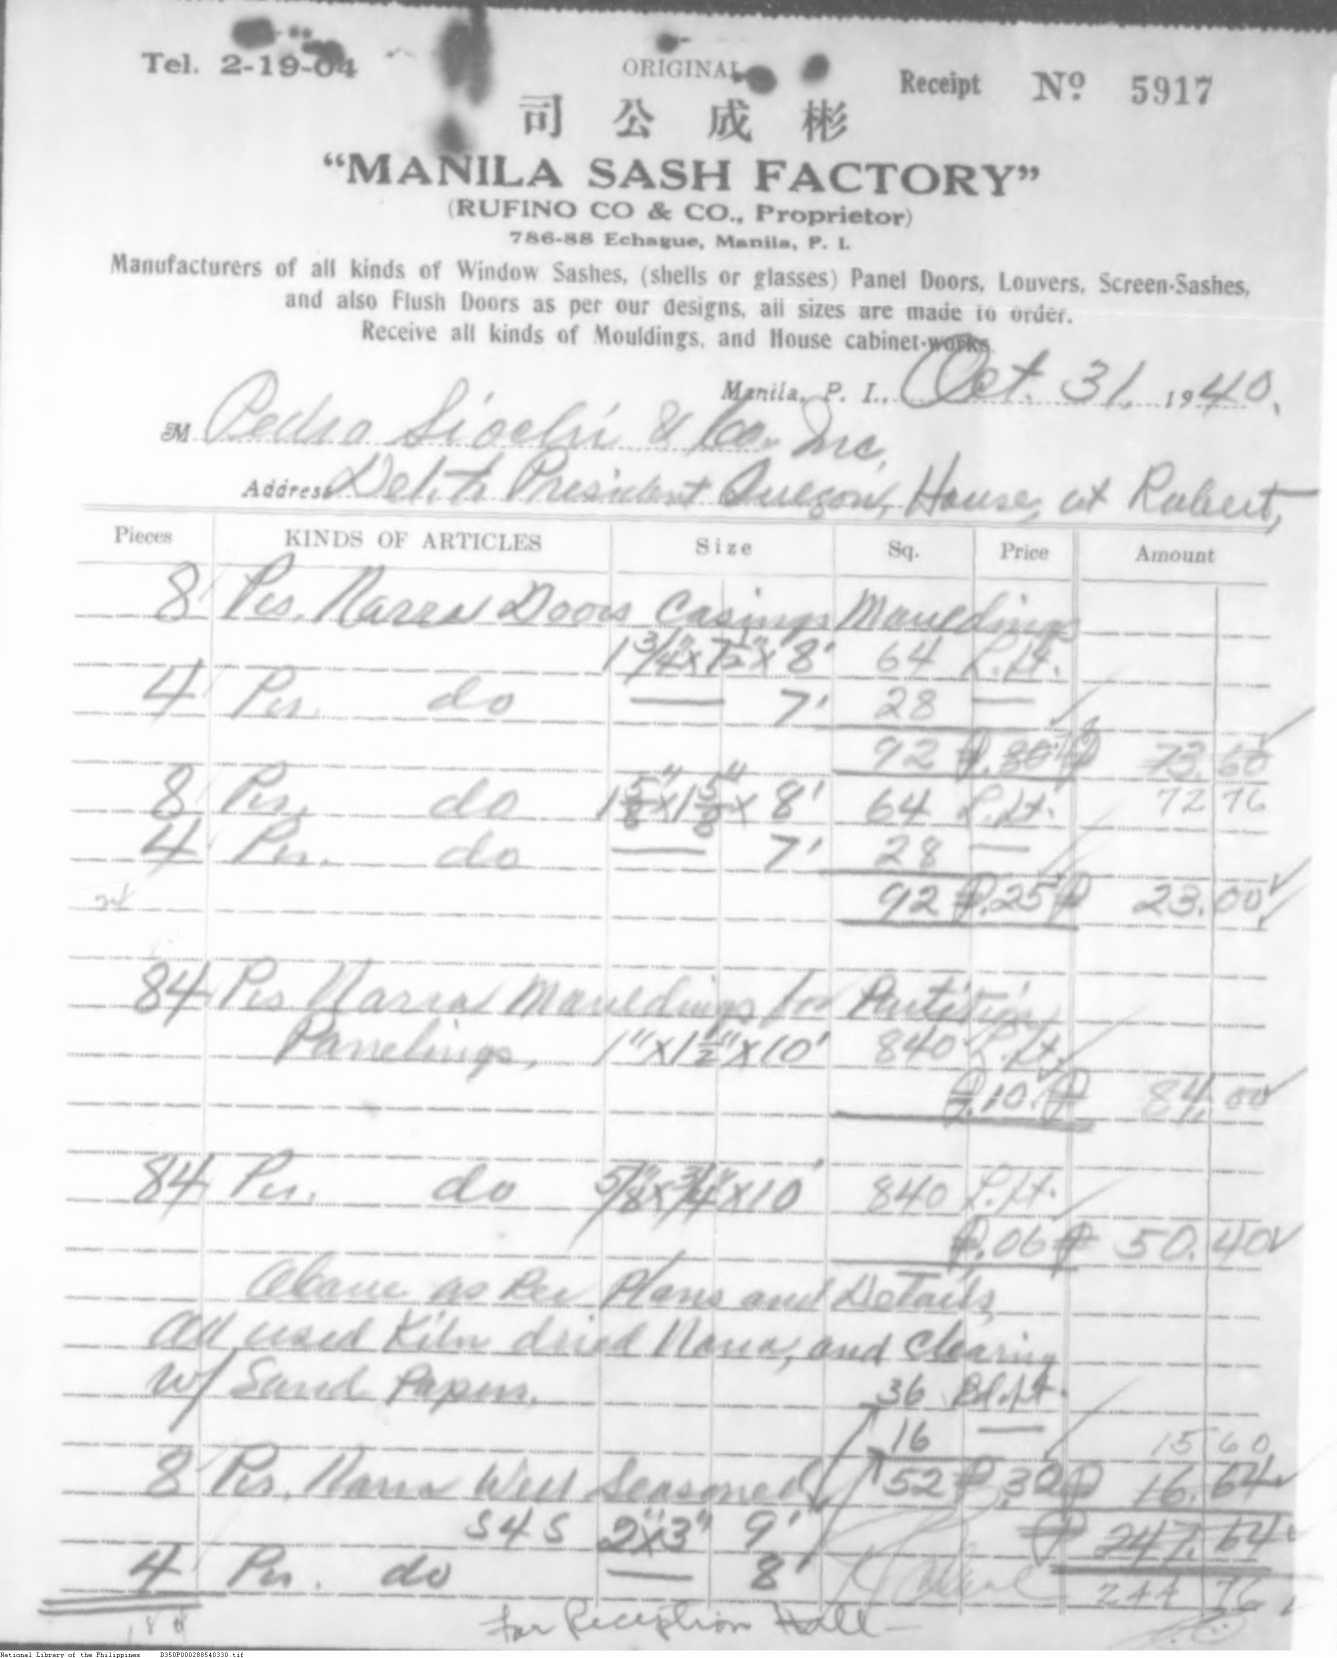 Tel. 2-19-04
ORIGINAL
Receipt Nº 5917
司 公 成 彬
“MANILA SASH FACTORY”
(RUFINO CO & CO., Proprietor)
786-88 Echague, Manila, P. I.
Manufacturers of all kinds of Window Sashes, (shells or glasses) Panel Doors, Louvers, Screen-Sashes,
and also Flush Doors as per our designs, all sizes are made to order.
Receive all kinds of Mouldings, and House cabinet-works
Manila, P. I., Oct. 31, 1940.
M Pedro Siochi & Co. Inc,
Address Del. to President Quezon, House, at Robert,
Pieces KINDS OF ARTICLES Size Sq. Price Amount
8 Pcs. Narra Doors Casings Mauldings
1 3/4" x 7 1/2" x 8' 64 L.ft.
4 Pcs. do — 7' 28 —
92 ₱.80 ₱ 73.60
8 Pcs. do 1 5/8" x 1 5/8" x 8' 64 L.ft. 72 76
4 Pcs. do — 7' 28 —
92 ₱.25 ₱ 23.00
84 Pcs Narra Mauldings for Partition
Panelings, 1" x 1 1/2" x 10' 840 L.ft.
₱.10 ₱ 84.00
84 Pcs. do 5/8" x 3/4" x 10' 840 L.ft.
₱.06 ₱ 50.40
Above as Per Plans and Details,
All used Kiln dried Narra, and Clearing
w/ Sand Papers. 36 Bd.ft.
16 — 15 60
8 Pcs. Narra Well Seasoned 52 ₱.32 ₱ 16.64
S4S 2"x3" 9' ₱ 247.64
4 Pcs. do — 8' 244 76
for Reception Hall —
National Library of the Philippines D350P000288540330.tif